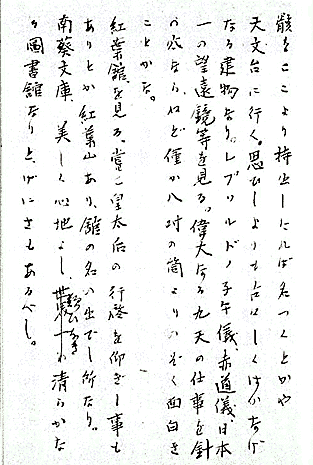 骸をここより持出したれば名つくとかや
天文台に行く。思ひしよりも古はしくはかなげ
なる建物なり。レプソルドノ子午儀、赤道儀、日本
一の望遠鏡等を見る。偉大なる九天の仕事を針
の穴ならねど僅か八吋の筒よりのぞく面白き
ことかな。
紅葉館を見る。嘗て皇太后の行啓を仰ぎし事も
ありとか紅葉山あり、館の名の出でし所なり。
南葵文庫、美しく心地よし、世界一の清らかな
る図書館なりと、げにさもあるべし。